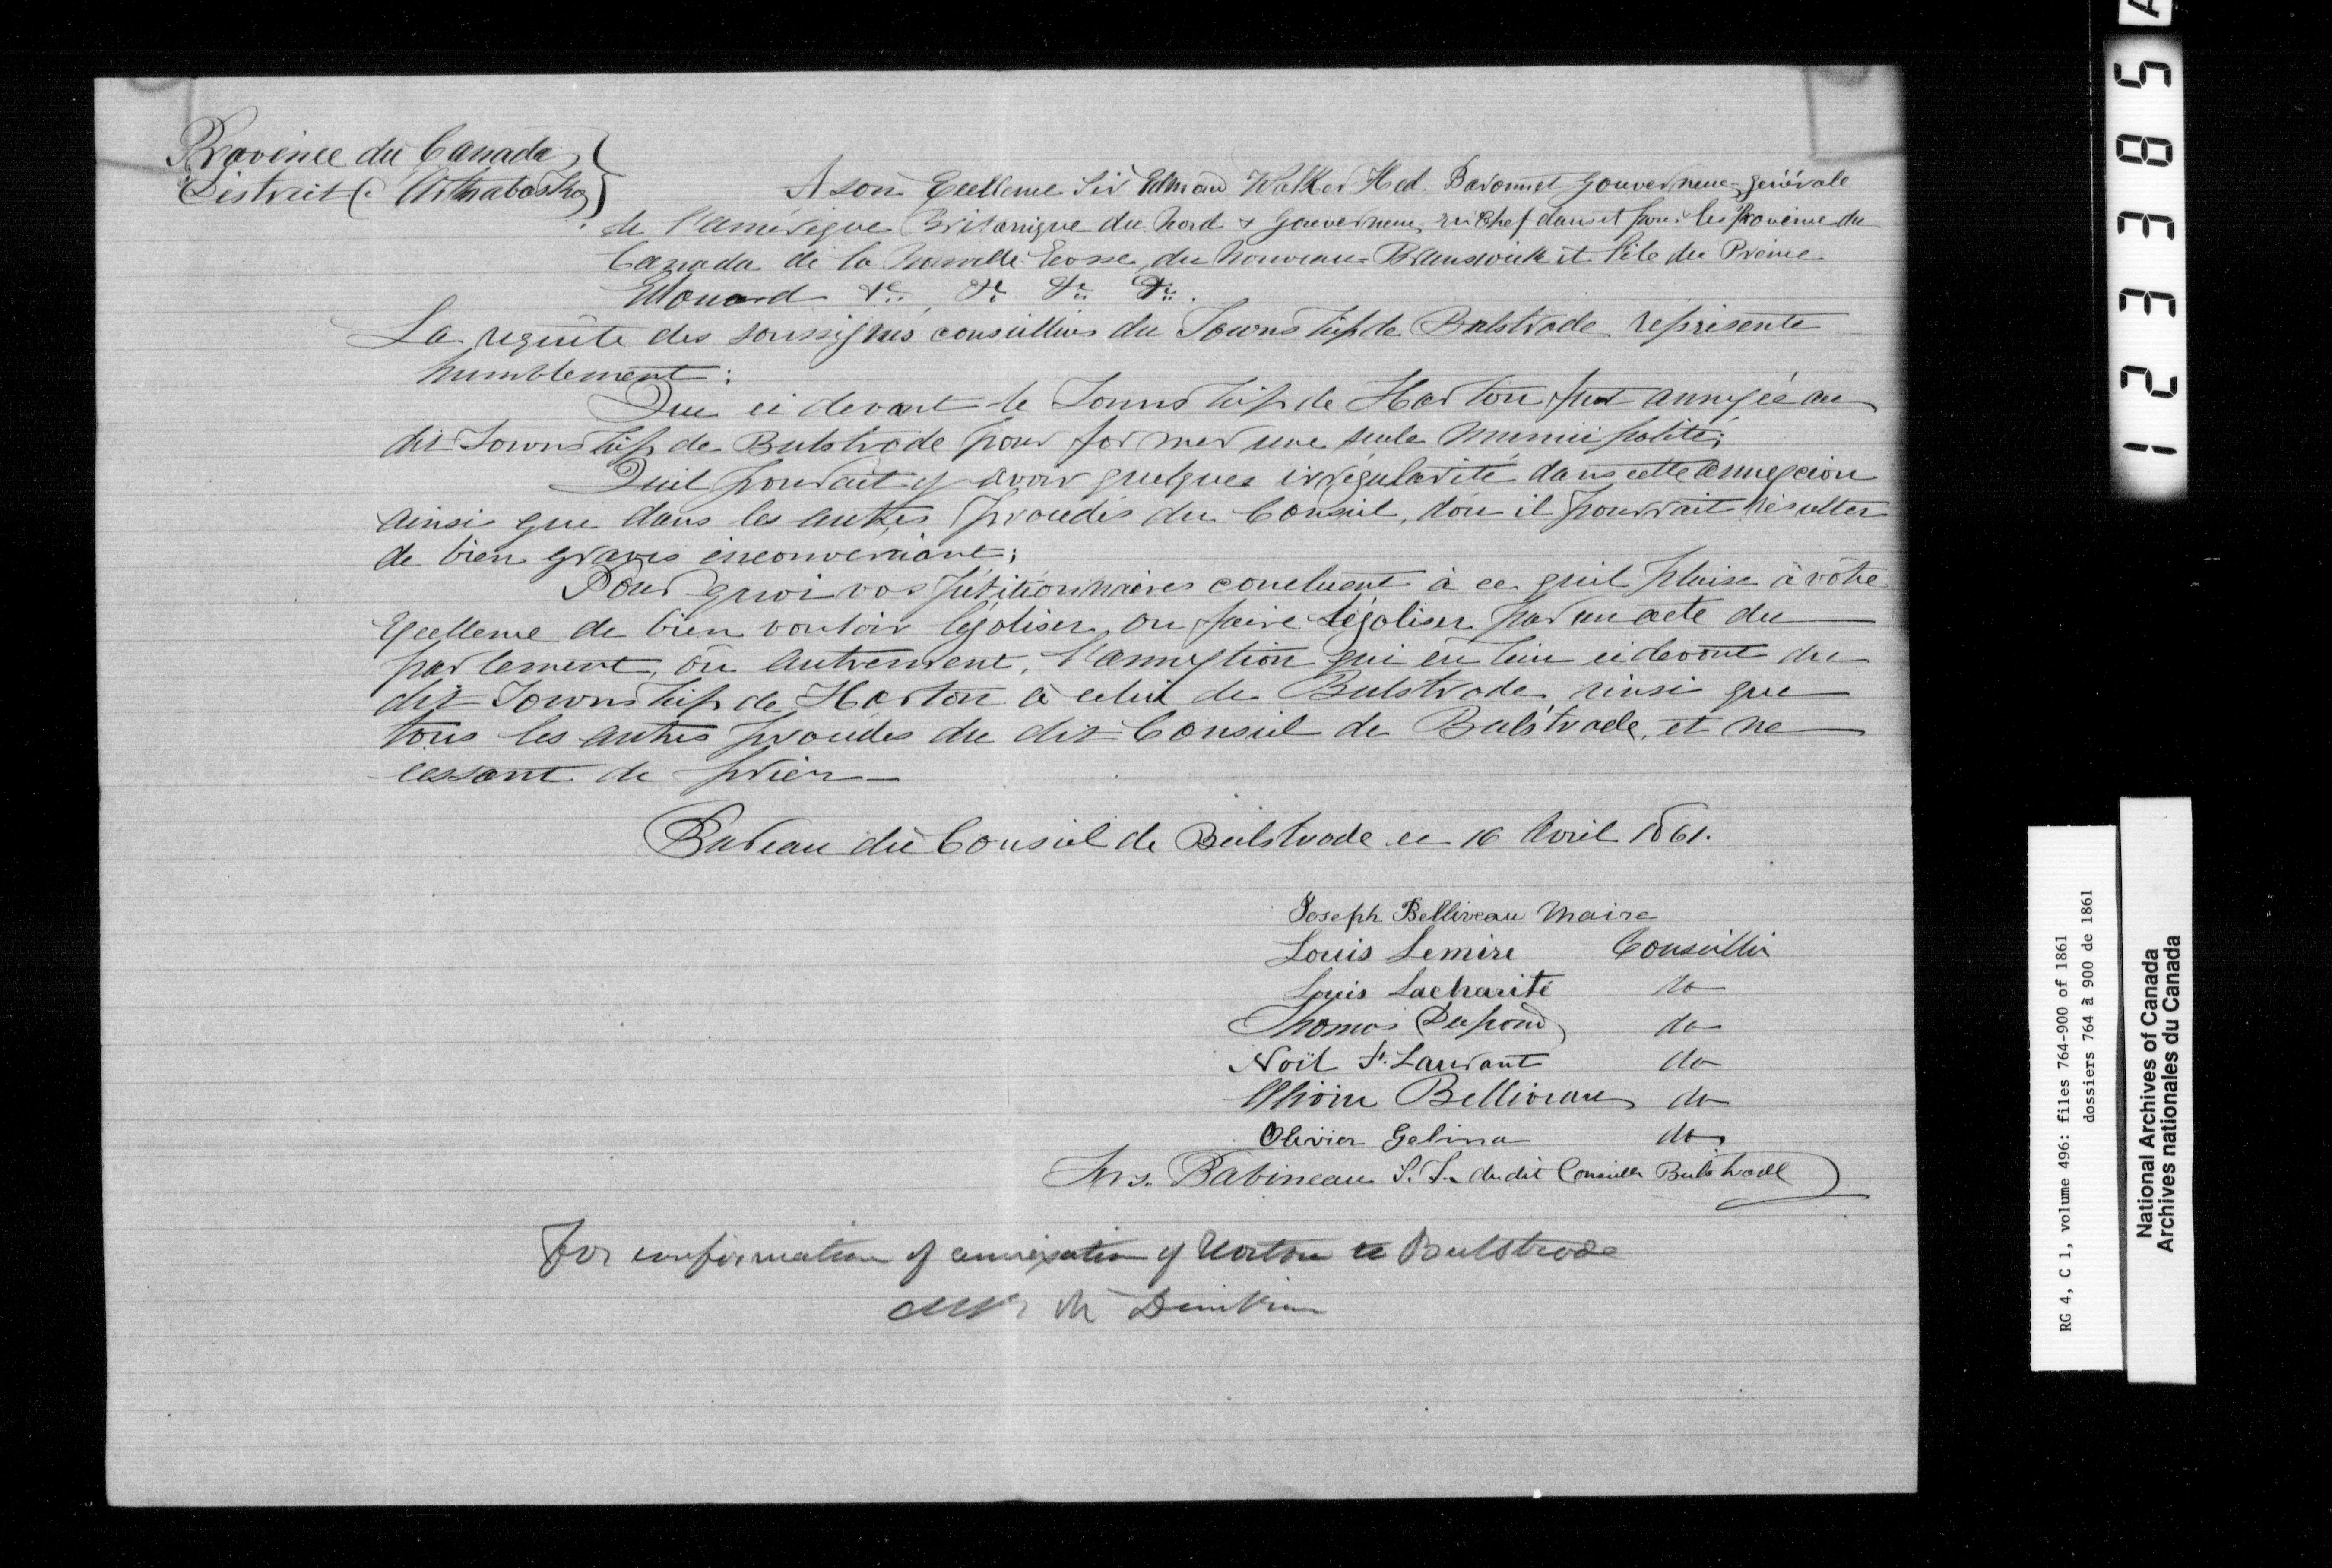 Province du Canada
District d'Arthabaska
A son Excellence Sir Edmond Walker Hed. Baronnet Gouverneur-générale
de l'amérique Britanique du Nord & Gouverneur en Chef dans et pour les Province du
Canada de la Nouvelle Ecosse, du Nouveau-Brunswick et l'ile du Prince
Edouard &c. &c. &c. &c.
La requête des soussignés conseillers du Township de Bulstrode représente
humblement:
Que ci devant le Township de Horton fut annexée au
dit Township de Bulstrode pour former une seule Municipalité;
Quil pourait y avoir quelques irrégularité dans cette annexcion
ainsi que dans les autres procédés du Conseil, dou il pourrait résulter
de bien graves inconveniant;
Pour quoi vos pétitionnaires concluent à ce quil plaise à vôtre
Excellence de bien vouloir légaliser, ou faire légaliser par un acte du
parlement, ou autrement, l'annextion qui eu lieu cidevant du
dit Township de Horton à celui de Bulstrode ainsi que
tous les autres procédés du dit Conseil de Bulstrode, et ne
cessant de prier
Bureau du Conseil de Bulstrode ce 16 Avril 1861.
Joseph Belliveau Maire
Louis Lemire Conseiller
Louis Lacharité do
Thomas Duhond do
Noël St. Laurant do
Olivier Belliveau do
Olivier Gelina do
Frs. Babineau S. T. du dit Conseille Bulstrode
For confirmation of annexation of Horton to Bulstrode
RG 4, C 1, volume 496: files 764-900 of 1861
dossiers 764 à 900 de 1861
National Archives of Canada
Archives nationales du Canada
123385